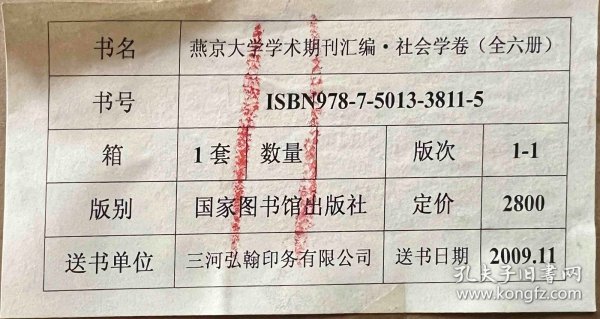 书名 燕京大学学术期刊汇编·社会学卷（全六册）
书号 ISBN978-7-5013-3811-5
箱 1套 数量 版次 1-1
版别 国家图书馆出版社 定价 2800
送书单位 三河弘翰印务有限公司 送书日期 2009.11
孔夫子旧书网
www.kongfz.com